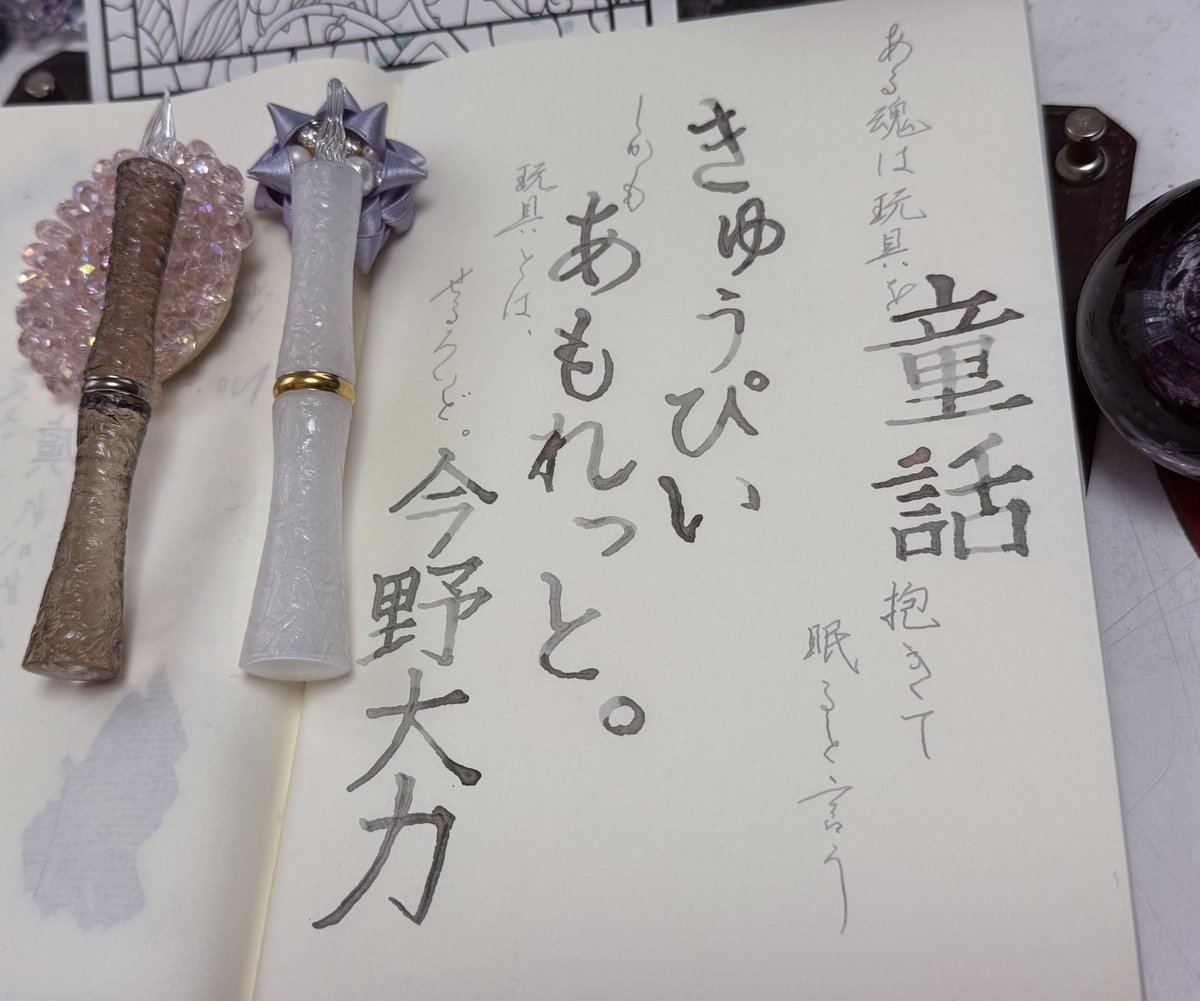 童話
ある魂は玩具を
抱きて
眠ると言う
きゅうぴい
しかも
あもれっと。
玩具とは、
せるろいど。
今野大力